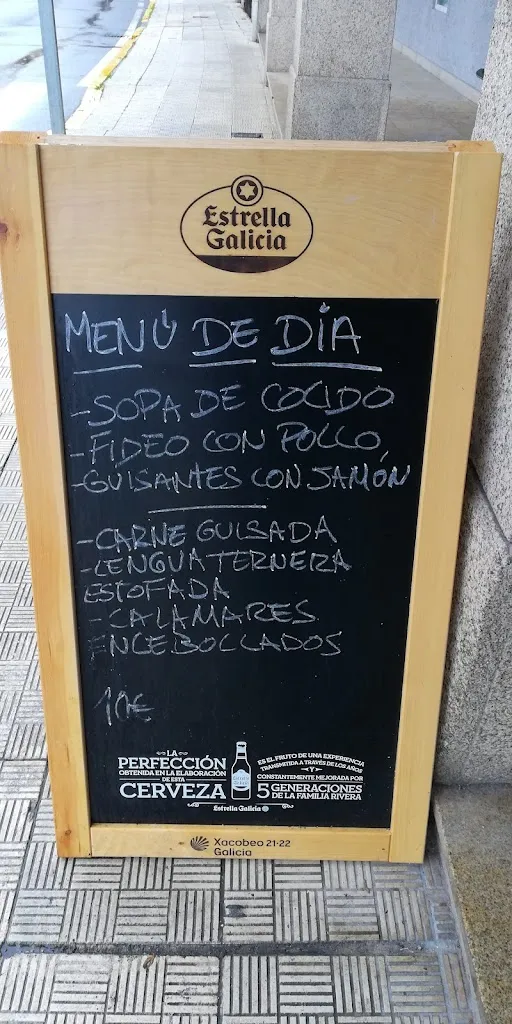 Estrella
Galicia
MENÚ DE DÍA
-SOPA DE COCIDO
-FIDEO CON POLLO,
-GUISANTES CON JAMÓN
-CARNE GUISADA
-LENGUA TERNERA
ESTOFADA
-CALAMARES
ENCEBOLLADOS
10€
LA
PERFECCIÓN
OBTENIDA EN LA ELABORACIÓN
DE ESTA
CERVEZA
ES EL FRUTO DE UNA EXPERIENCIA
TRANSMITIDA A TRAVÉS DE LOS AÑOS
Y
CONSTANTEMENTE MEJORADA POR
5 GENERACIONES
DE LA FAMILIA RIVERA
Estrella Galicia
Xacobeo 21·22
Galicia